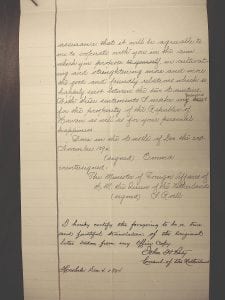 assurance that it will be agreeable to
me to cooperate with you in the aim
which you propose to yourself, in cultivat-
ing and strengthening more and more
the good and friendly relations which so
happily exist between the two Countries.
With these sentiments I make my best
for the prosperity of the Republic of
Hawaii as well as for your personal
happiness.
Done in the Castle of Loo the 2nd
November 1894
(signed) Emma
countersigned:
The Minister of Foreign Affairs of
H. M. the Queen of the Netherlands
(signed) J Roëll
I hereby certify the foregoing to be a true
and faithful translation of the original
letter taken from my Office Copy
John H Paty
Consul of the Netherlands
Honolulu Dec 4. 1894